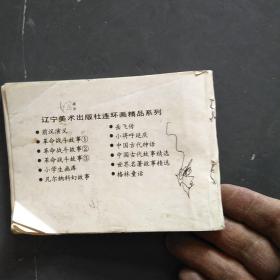 辽宁美术出版社连环画精品系列
• 前汉演义
• 革命战斗故事①
• 革命战斗故事②
• 革命战斗故事③
• 小学生画库
• 凡尔纳科幻故事
• 岳飞传
• 小将呼延庆
• 中国古代神话
• 中国古代故事精选
• 世界名著故事精选
• 格林童话